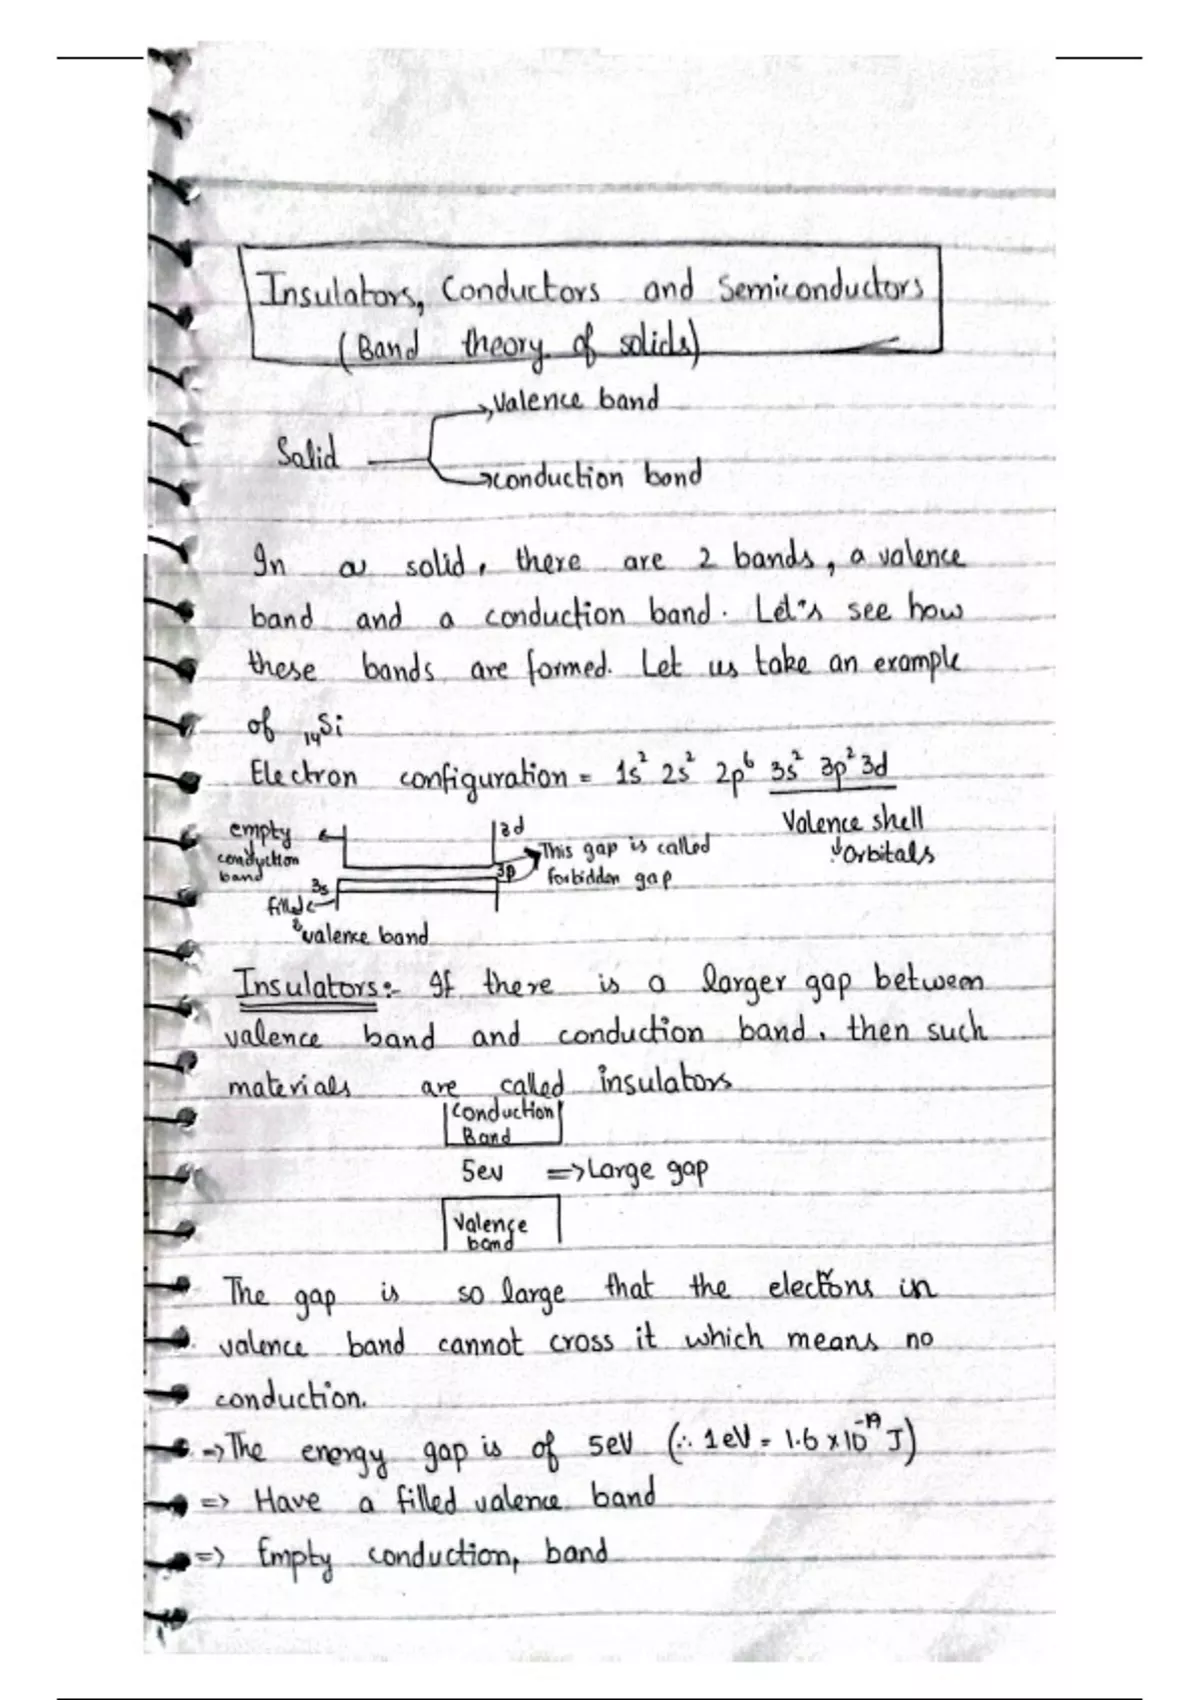 Insulators, Conductors and Semiconductors
(Band theory of solids)
Valence band
Solid
conduction band
In a solid, there are 2 bands, a valence
band and a conduction band. Let's see how
these bands are formed. Let us take an example
of ₁₄Si
Electron configuration = 1s² 2s² 2p⁶ 3s² 3p² 3d
Valence shell
Orbitals
empty
conduction
band
3d
This gap is called
forbidden gap
3p
3s
filled
valence band
Insulators:- If there is a larger gap between
valence band and conduction band, then such
materials are called insulators
Conduction
Band
5ev => Large gap
Valence
band
The gap is so large that the electrons in
valence band cannot cross it which means no
conduction.
=> The energy gap is of 5eV (∴ 1eV = 1.6 x 10⁻¹⁹ J)
=> Have a filled valence band
=> Empty conduction, band